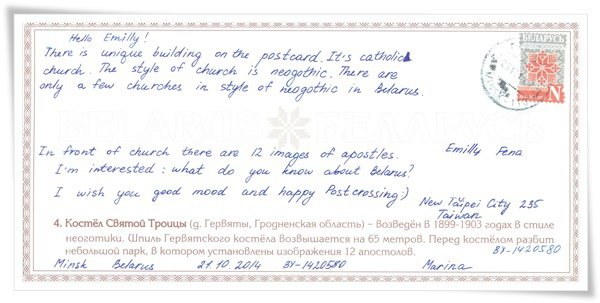 Hello Emilly!
There is unique building on the postcard. It's catholic
church. The style of church is neogothic. There are
only a few churches in style of neogothic in Belarus.
БЕЛАРУСЬ
N
In front of church there are 12 images of apostles.
I'm interested: what do you know about Belarus?
I wish you good mood and happy Postcrossing:)
Emilly Fena
New Taipei City 235
Taiwan
4. Костёл Святой Троицы (д. Гервяты, Гродненская область) – возведён в 1899-1903 годах в стиле
неоготики. Шпиль Гервятского костёла возвышается на 65 метров. Перед костёлом разбит
небольшой парк, в котором установлены изображения 12 апостолов.
BY-1420580
Minsk Belarus 21.10.2014 BY-1420580 Marina